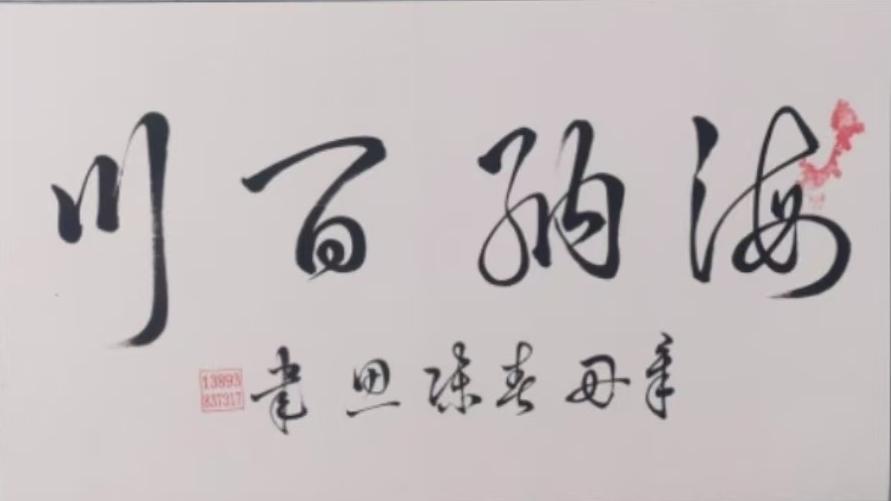 海纳百川
辛丑春陈思书
13893
837317